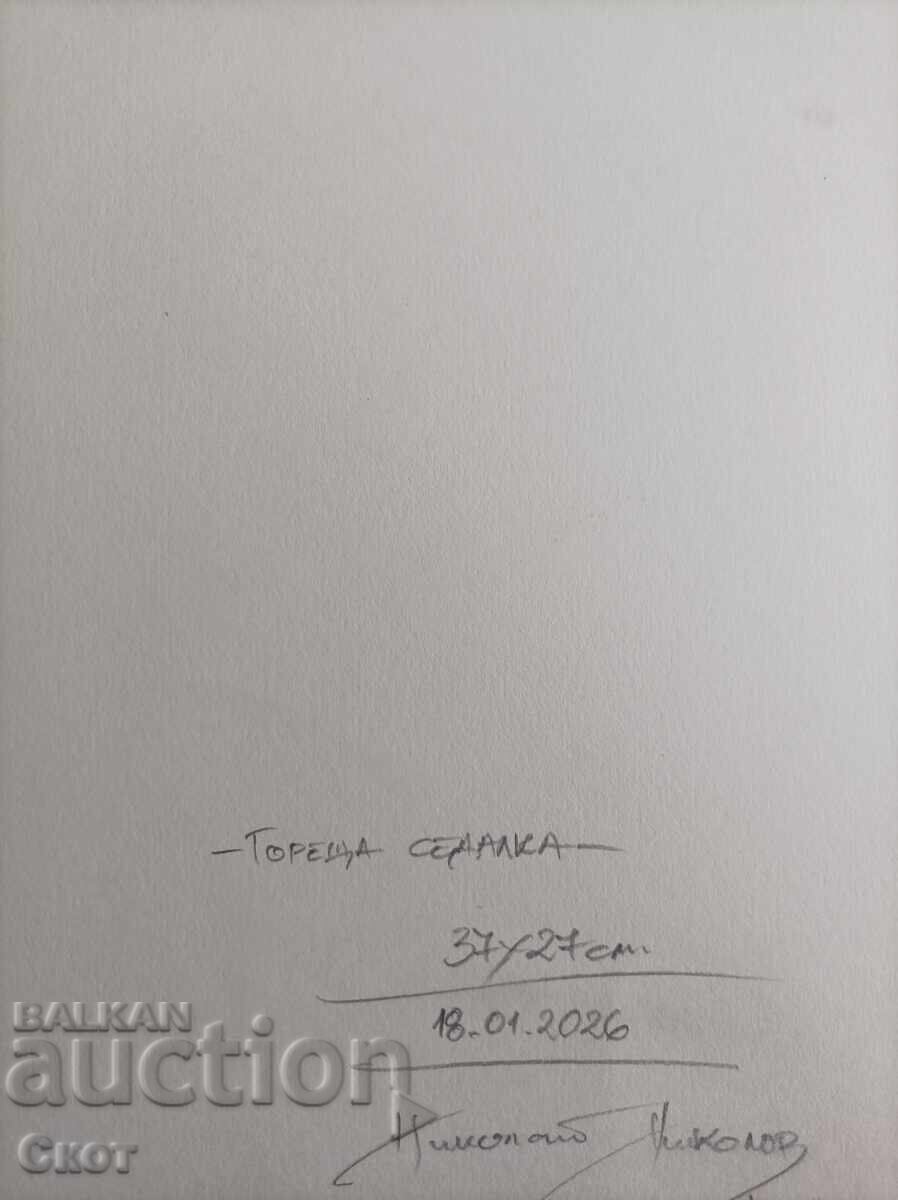 – Гореща седалка –
37x27см.
18.01.2026
Николай Николов
BALKAN
auction
Скот